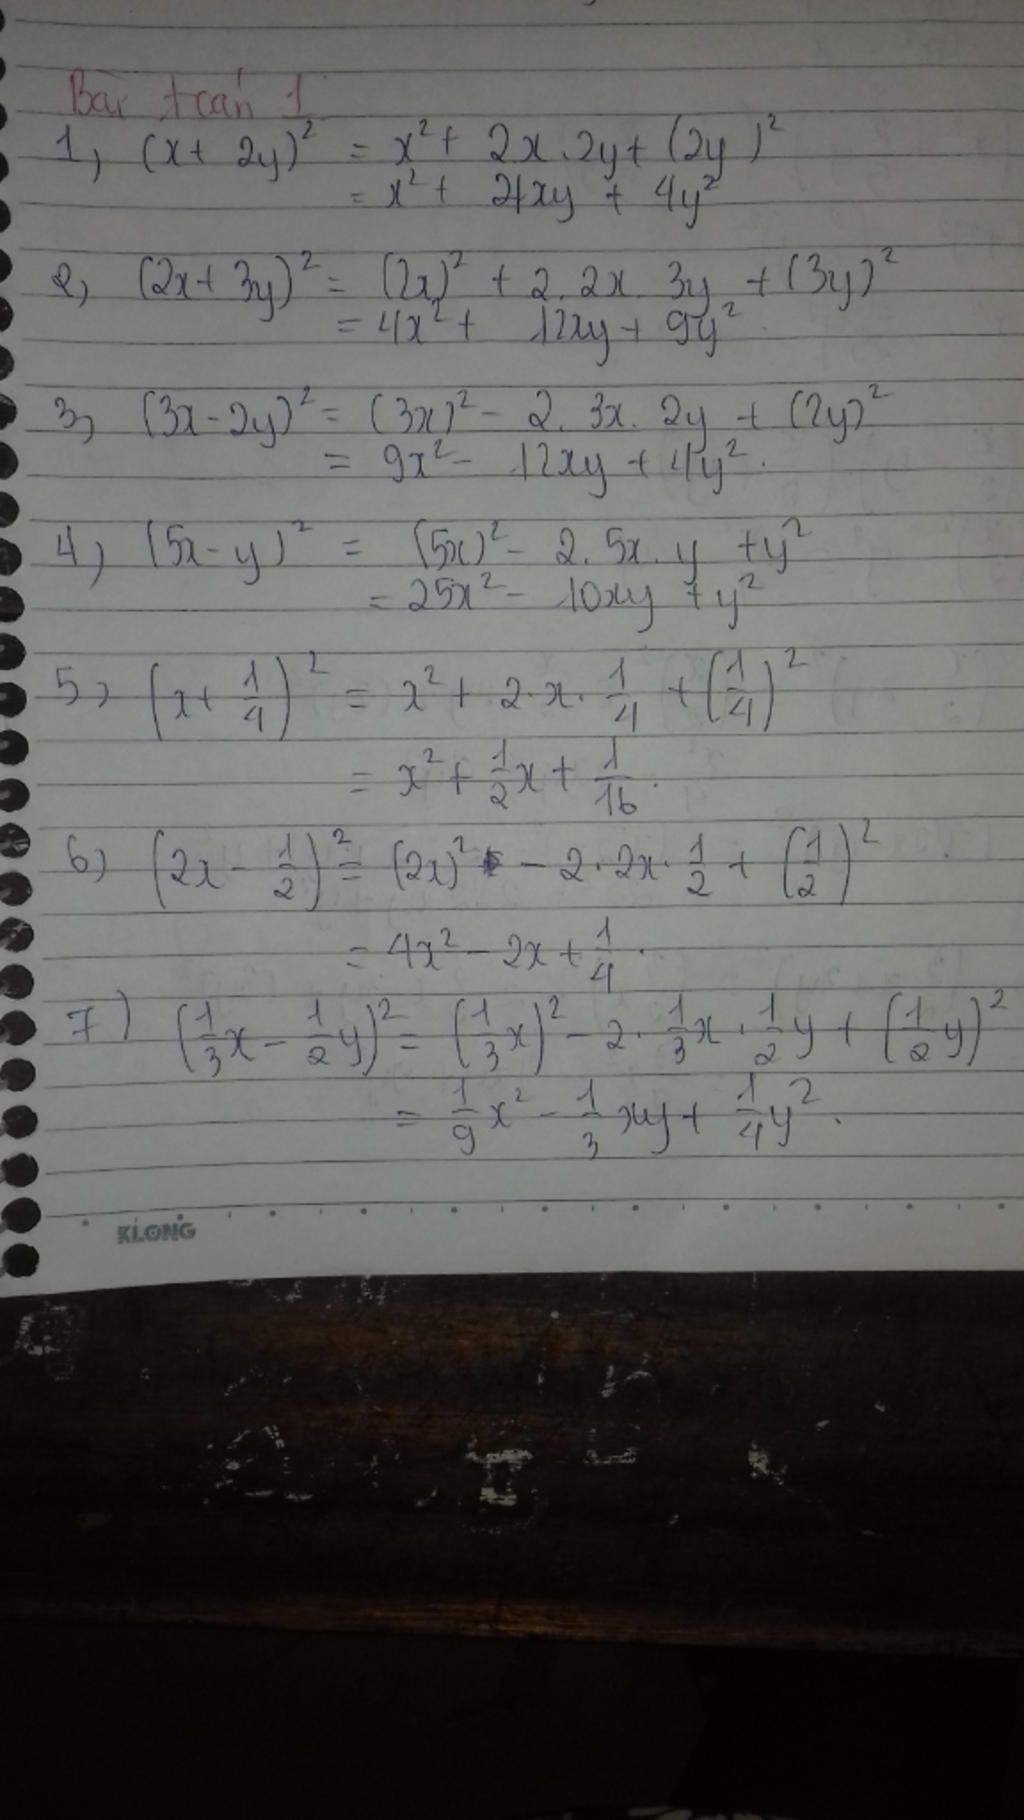 Bài toán 1
1, (x + 2y)² = x² + 2x . 2y + (2y)²
= x² + 4xy + 4y²
2, (2x + 3y)² = (2x)² + 2. 2x. 3y + (3y)²
= 4x² + 12xy + 9y².
3, (3x - 2y)² = (3x)² - 2. 3x. 2y + (2y)²
= 9x² - 12xy + 4y².
4, (5x - y)² = (5x)² - 2. 5x. y + y²
= 25x² - 10xy + y²
5, (x + 1/4)² = x² + 2. x. 1/4 + (1/4)²
= x² + 1/2x + 1/16.
6) (2x - 1/2)² = (2x)² - 2. 2x. 1/2 + (1/2)²
= 4x² - 2x + 1/4.
7) (1/3x - 1/2y)² = (1/3x)² - 2. 1/3x. 1/2y + (1/2y)²
= 1/9x² - 1/3xy + 1/4y².
KLONG